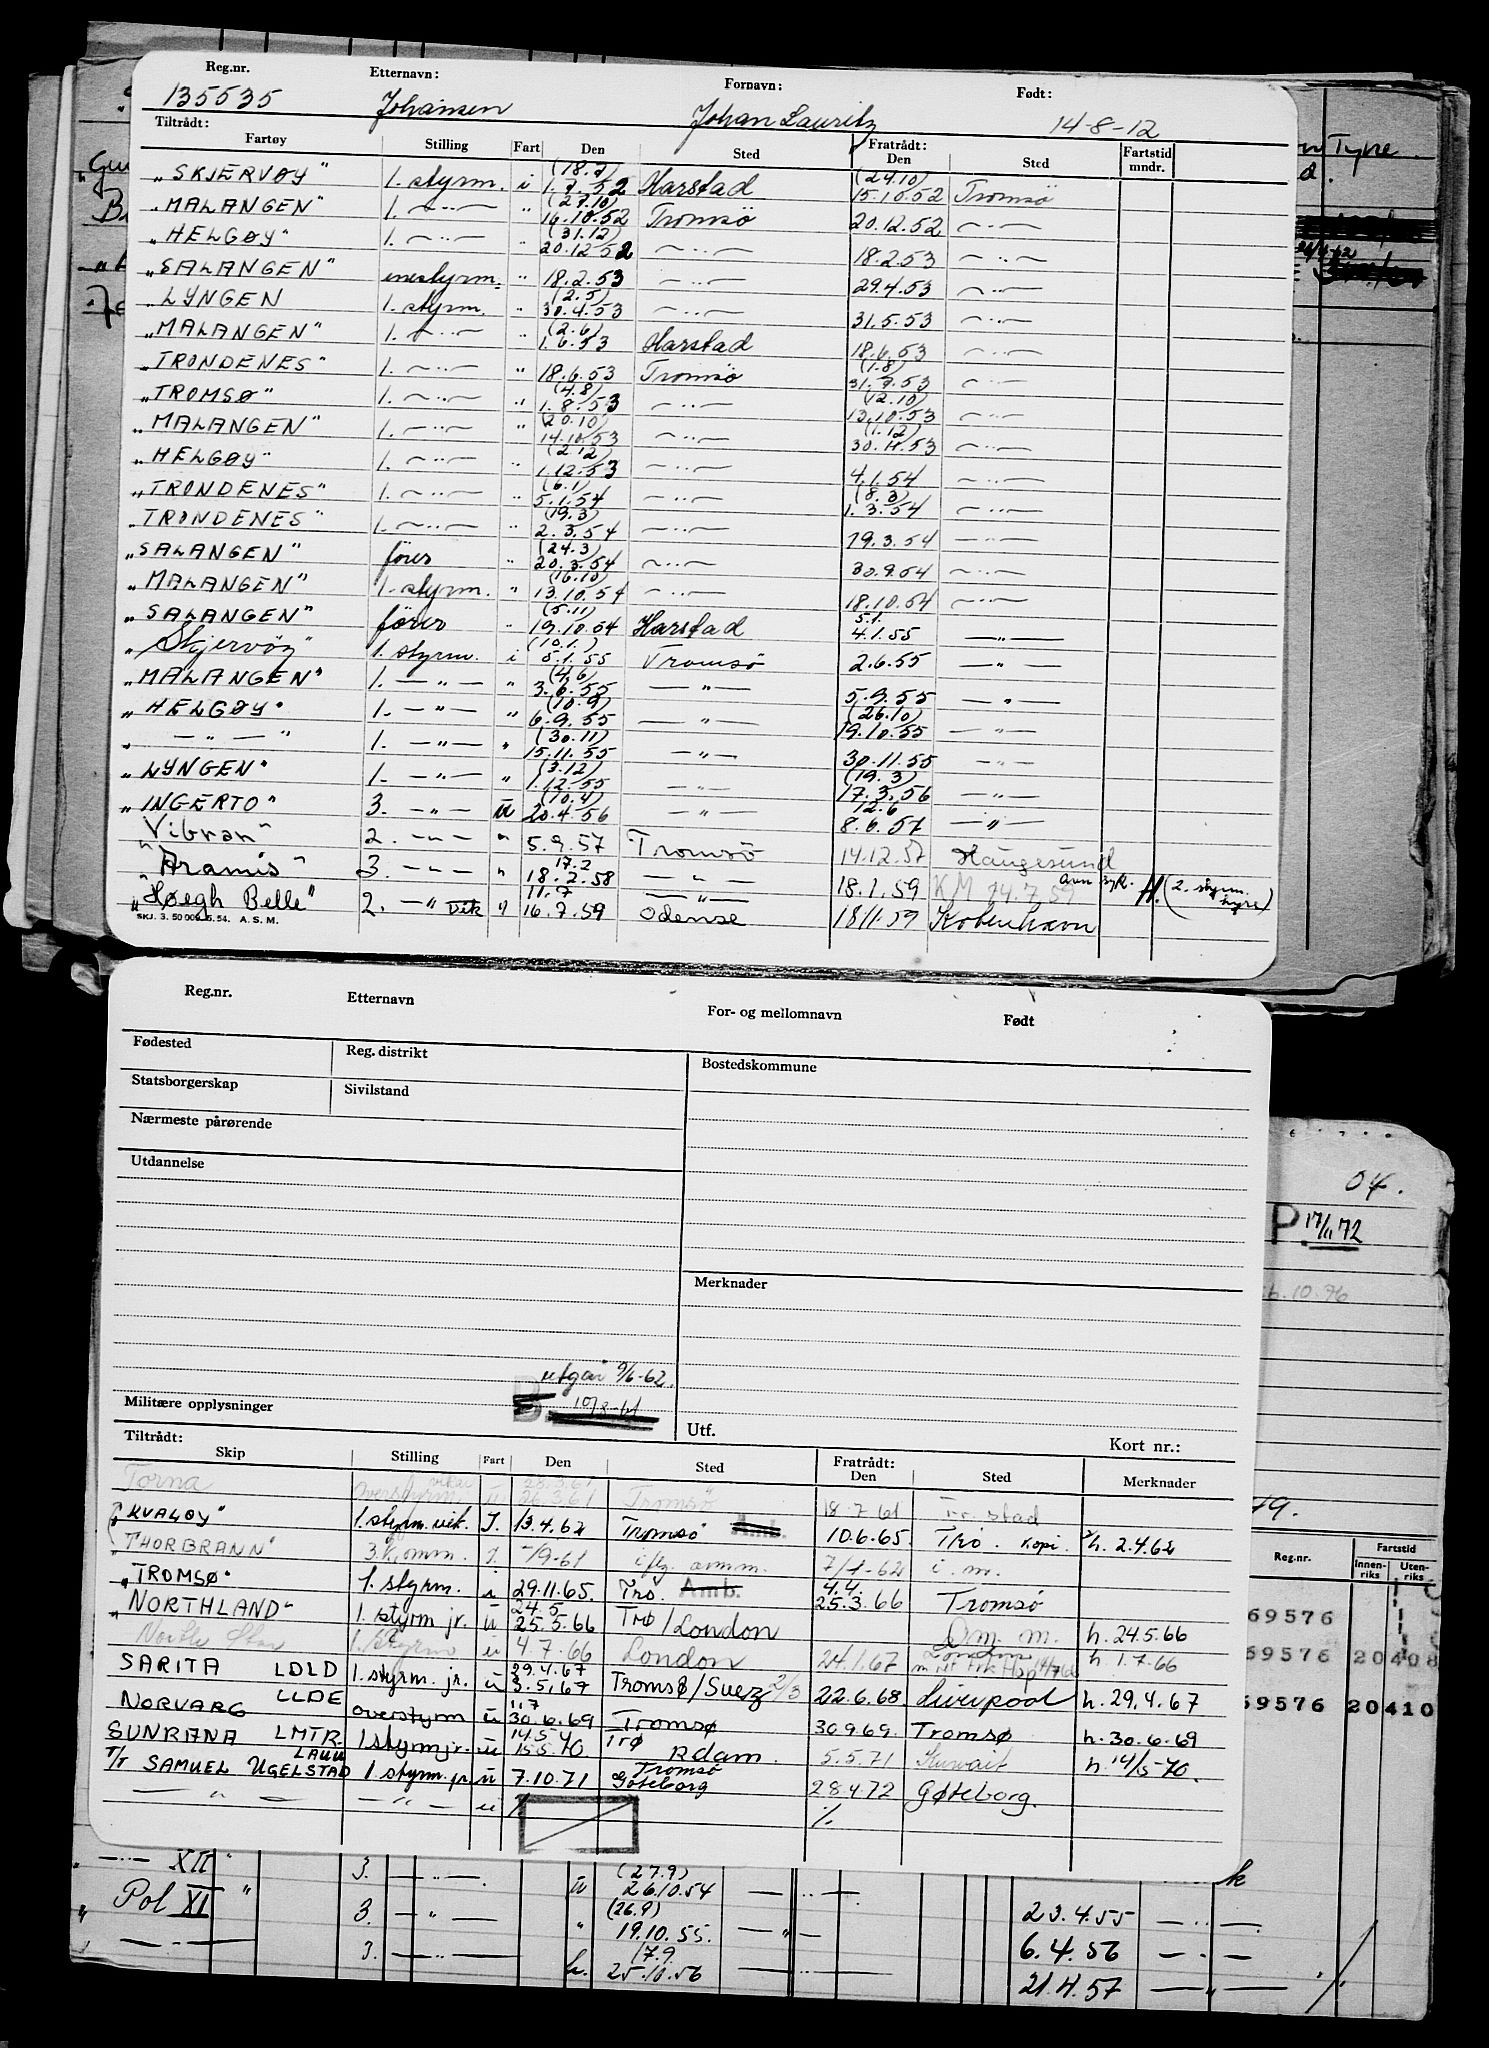 Reg.nr. Etternavn: Fornavn: Født:
135535 Johansen Johan Lauritz 14-8-12
Tiltrådt: Fratrådt:
Fartøy Stilling Fart Den Sted Den Sted Fartstid mndr.
"SKJERVØY" 1. styrm. i (18.7) 1.7.52 Harstad (24.10) 15.10.52 Tromsö
"MALANGEN" 1. —"— " (27.10) 16.10.52 Tromsö 20.12.52 —"—
"HELGØY" 1. —"— " (31.12) 20.12.52 —"— 18.2.53 —"—
"SALANGEN" enestyrm. " 18.2.53 —"— 29.4.53 —"—
LYNGEN 1. styrm. " (2.5) 30.4.53 —"— 31.5.53 —"—
"MALANGEN" 1. —"— " (2.6) 1.6.53 Harstad 18.6.53 —"—
"TRONDENES" 1. —"— " 18.6.53 Tromsö (1.8) 31.7.53 —"—
"TROMSØ" 1. —"— " (4.8) 1.8.53 —"— (12.10) 13.10.53 —"—
"MALANGEN" 1. —"— " (20.10) 14.10.53 —"— (1.12) 30.11.53 —"—
"HELGØY" 1. —"— " (2.12) 1.12.53 —"— 4.1.54 —"—
"TRONDENES" 1. —"— " (6.1) 5.1.54 —"— (8.3) 1.3.54 —"—
TRONDENES" 1. —"— " (19.3) 2.3.54 —"— 19.3.54 —"—
"SALANGEN" förer " (24.3) 20.3.54 —"— 30.9.54 —"—
"MALANGEN" 1. styrm. " (16.10) 13.10.54 —"— 18.10.54 —"—
"SALANGEN" förer " (5.11) 19.10.54 Harstad 5.1. 4.1.55 —"—
"Skjervöy" 1. styrm. i (10.1.) 5.1.55 Tromsö 2.6.55 —"—
"MALANGEN" 1. —"— " (4.6) 3.6.55 —"— 5.9.55 —"—
"HELGØY" 1. —"— " (10.9) 6.9.55 —"— (26.10) 19.10.55
" —"— " 1. —"— " (30.11) 15.11.55 —"— 30.11.55 —"—
"LYNGEN" 1. —"— " (3.12) 1.12.55 —"— (19.3) 17.3.56 —"—
"INGERTO" 3. —"— u (10.4) 20.4.56 —"— 12.6 8.6.57 —"—
"Vibran" 2. —"— " 5.9.57 Tromsö 14.12.57 Haugesund
"Aramis" 3. —"— " 17.2 18.2.58 —"— 18.1.59 KM 14.7.59 H. (2. styrm. hyre)
"Høegh Belle" 2. —"— vik " 11.7 16.7.59 Odense 18/11.59 København
SKJ. 3. 50 000. 6. 54. A.S.M.
Reg.nr. Etternavn For- og mellomnavn Født
Fødested Reg. distrikt Bostedskommune
Statsborgerskap Sivilstand
Nærmeste pårørende
Utdannelse
Merknader
utgår 9/6-62.
Militære opplysninger B. 10/8-61 Utf. Kort nr.:
Tiltrådt: Fratrådt:
Skip Stilling Fart Den Sted Den Sted Merknader
Torna overstyrm vikar u 26.3.61 Tromsö 18-7-61 Fr. stad
"KVALØY" 1. styrm. vik. I. 13.4.62 Tromsö Amb. 10.6.65 Trö. Kopi. h. 2.4.62
"THORBRANN" 3. Komm. I. -/9-61 ifg. omm. 7/1-62 i. m.
"TROMSØ" 1. styrm. i 29.11.65. Trö. Amb. 4.4. 25.3.66 Tromsö
"NORTHLAND" 1. styrm jr. u 24.5 25.5.66 Trø/London Om. m. h. 24.5.66
North Star 1. Styrm u 4.7.66 London 24.1.67 London h. 1.7.66
SARITA LDLD 1. styrm. jr. u 29.4.67 3.5.67 Tromsø/Suez 2/3 22.6.68 Liverpool h. 29.4.67
NORVARG LLDE overstyrm u 1.7 30.6.69 Tromsø 30.9.69. Tromsø h. 30.6.69
SUNRANA LMTR 1 styrm jr. u 14.5 15.5.70 Trø Rdam. 5.5.71 Kuwait h. 14/5-70.
T/T SAMUEL UGELSTAD LAUU 1. styrm. jr u 7.10.71 Tromsø Göteborg 28.4.72 Gøteborg.
—"— —"— u %. %.
—"— XII" 3. —"— u (27.9) 26.10.54 —"— 23.4.55 —"—
" Pol XI" 3. —"— " (26.9) 19.10.55. —"— 6.4.56 —"—
" —"— 3. —"— h. 17.9 25.10.56 —"— 21.4.57 —"—
Type
04.
P. 17/11 72
Reg.nr. Fartstid
Innen-riks Uten-riks
69576
69576 20408
69576 20410